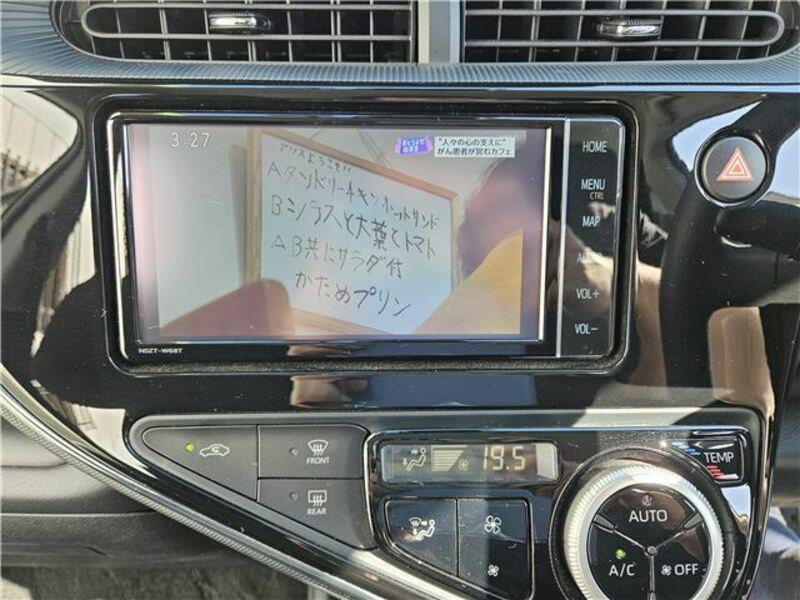 3:27
"人々の心の支えに"
がん患者が営むカフェ
アリスようこそ!!
Aタンドリーチキンホットサンド
Bシラスと大葉とトマト
AB共にサラダ付
かためプリン
HOME
MENU
CTRL
MAP
VOL+
VOL-
NSZT-W68T
FRONT
REAR
19.5
TEMP
AUTO
A/C
OFF